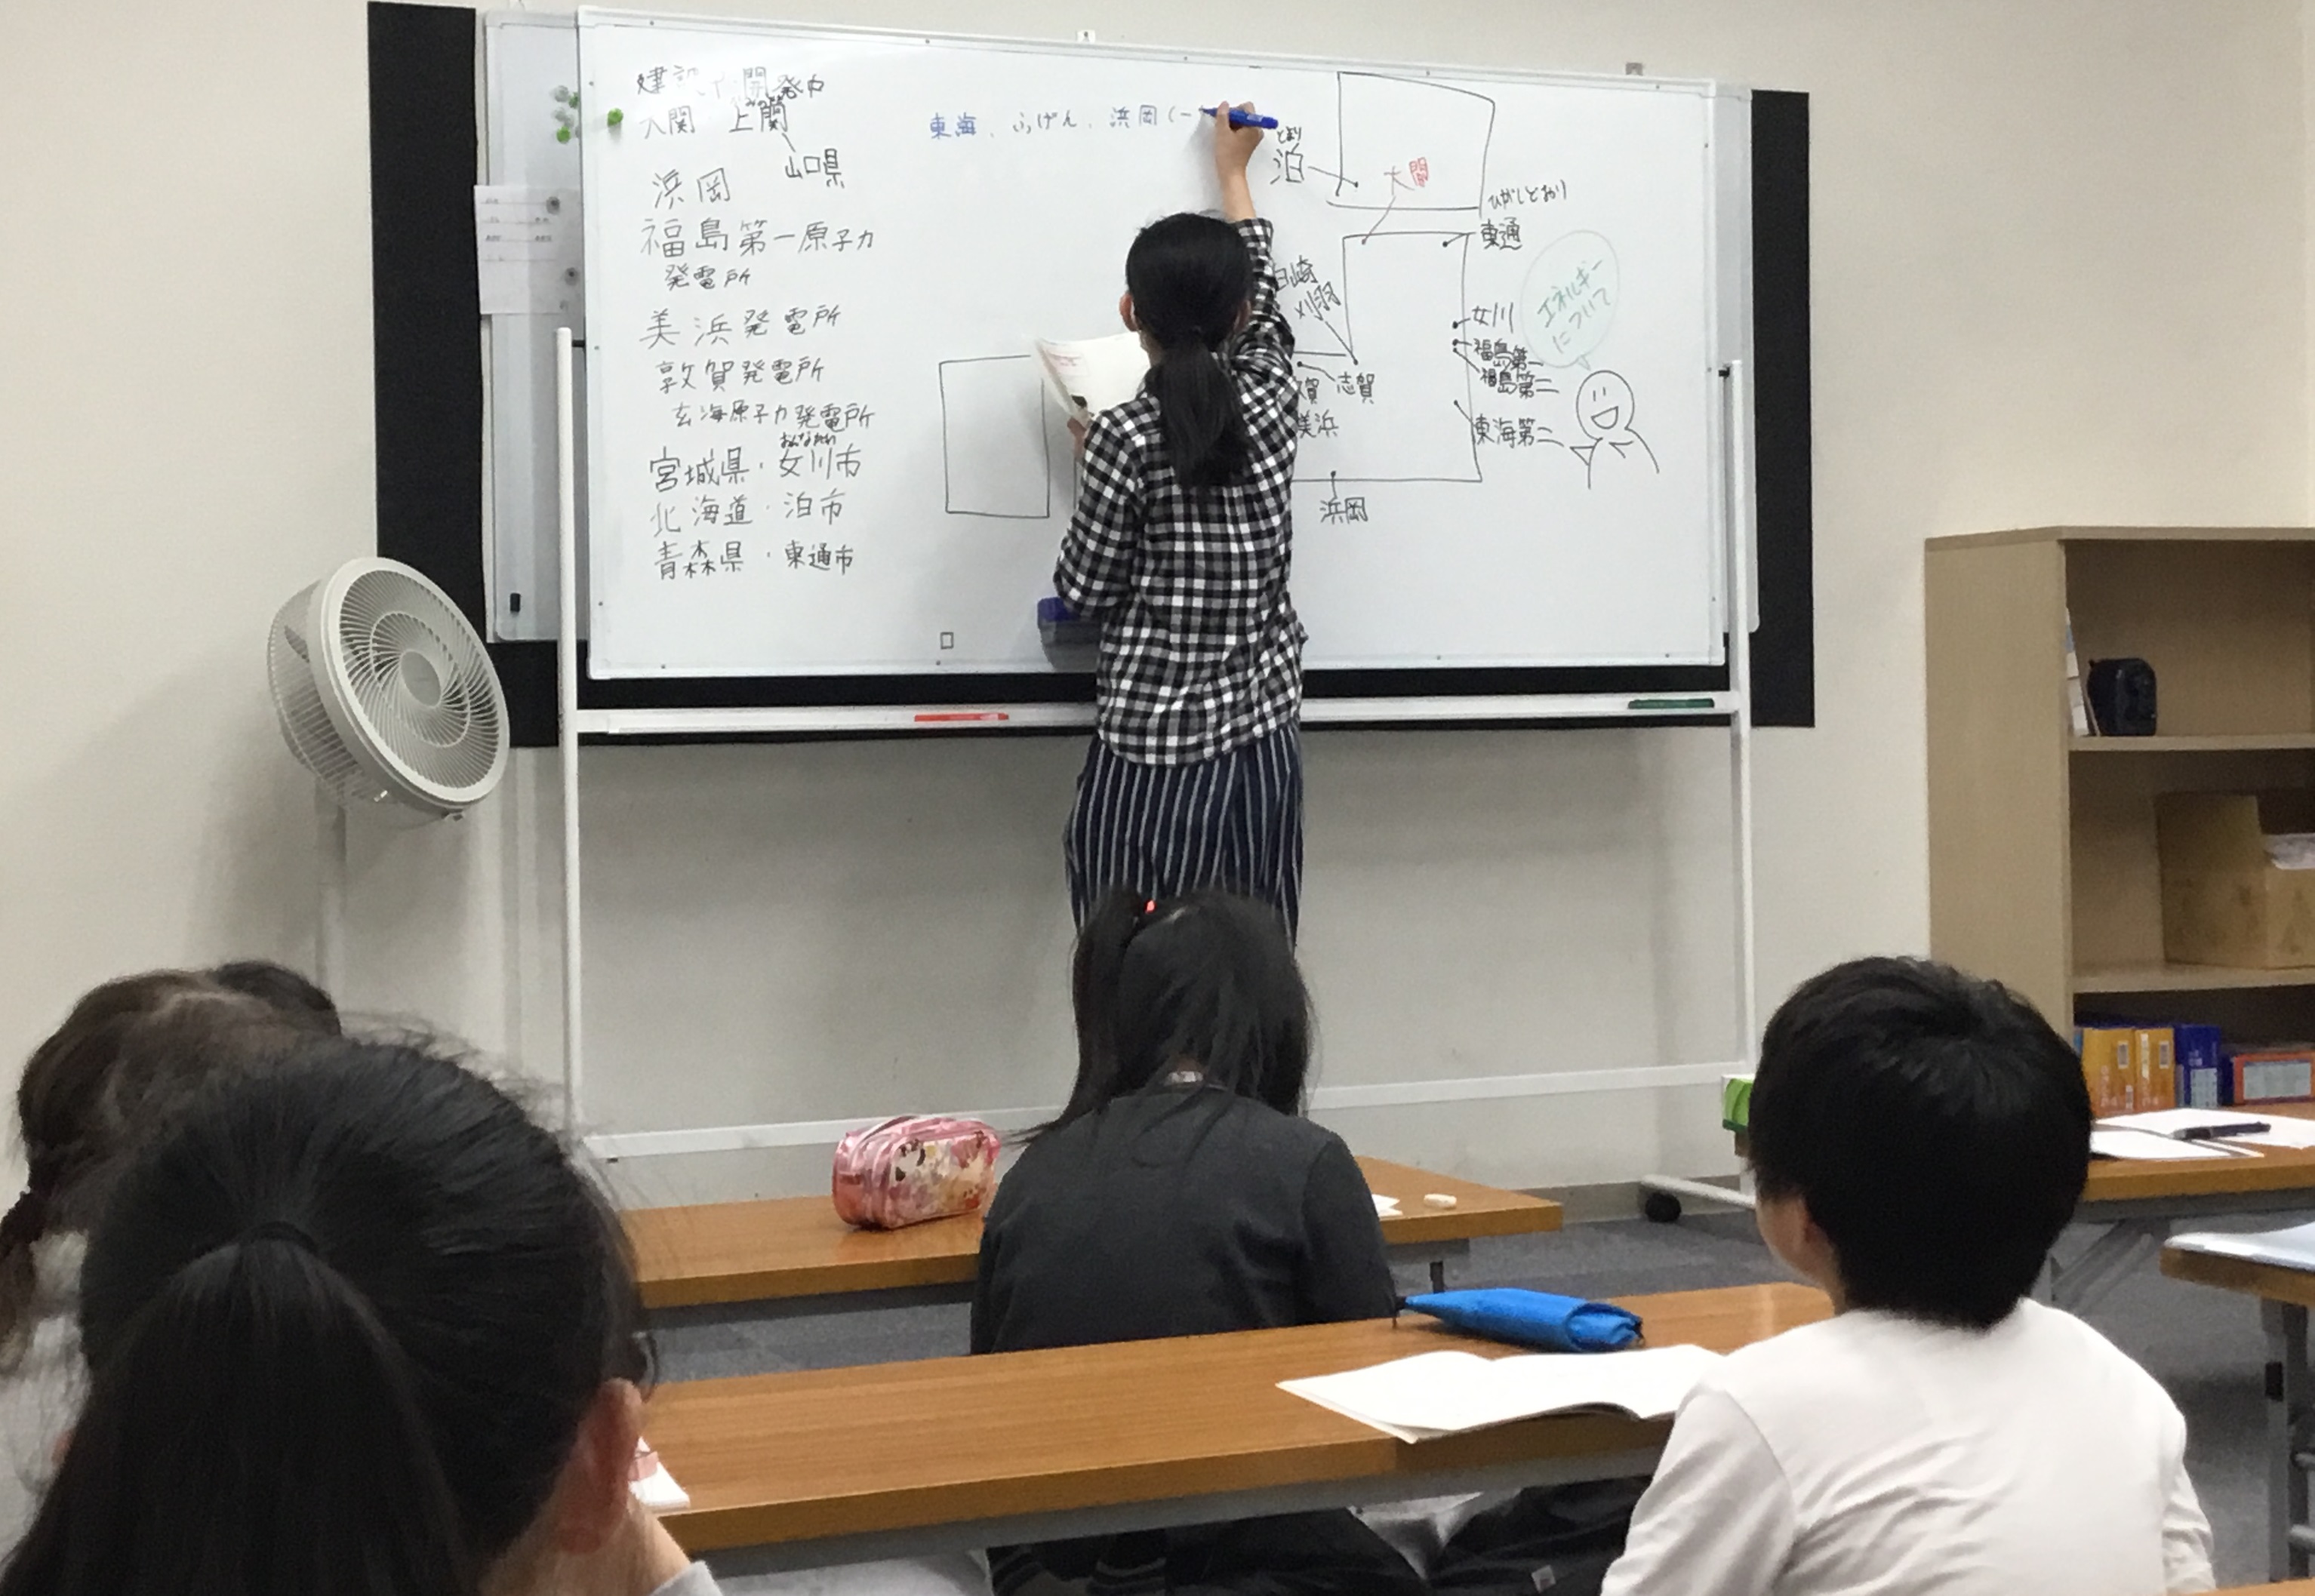 建設中 開発中
大間 上関
山口県
浜岡
福島第一原子力
発電所
美浜発電所
敦賀発電所
玄海原子力発電所
おんながわ
宮城県・女川市
北海道・泊市
青森県・東通市
東海、ふげん、浜岡(一
とまり
泊
大間
ひがしどおり
東通
柏崎
刈羽
女川
福島第一
福島第二
賀
志賀
美浜
東海第二
浜岡
エネルギー
について